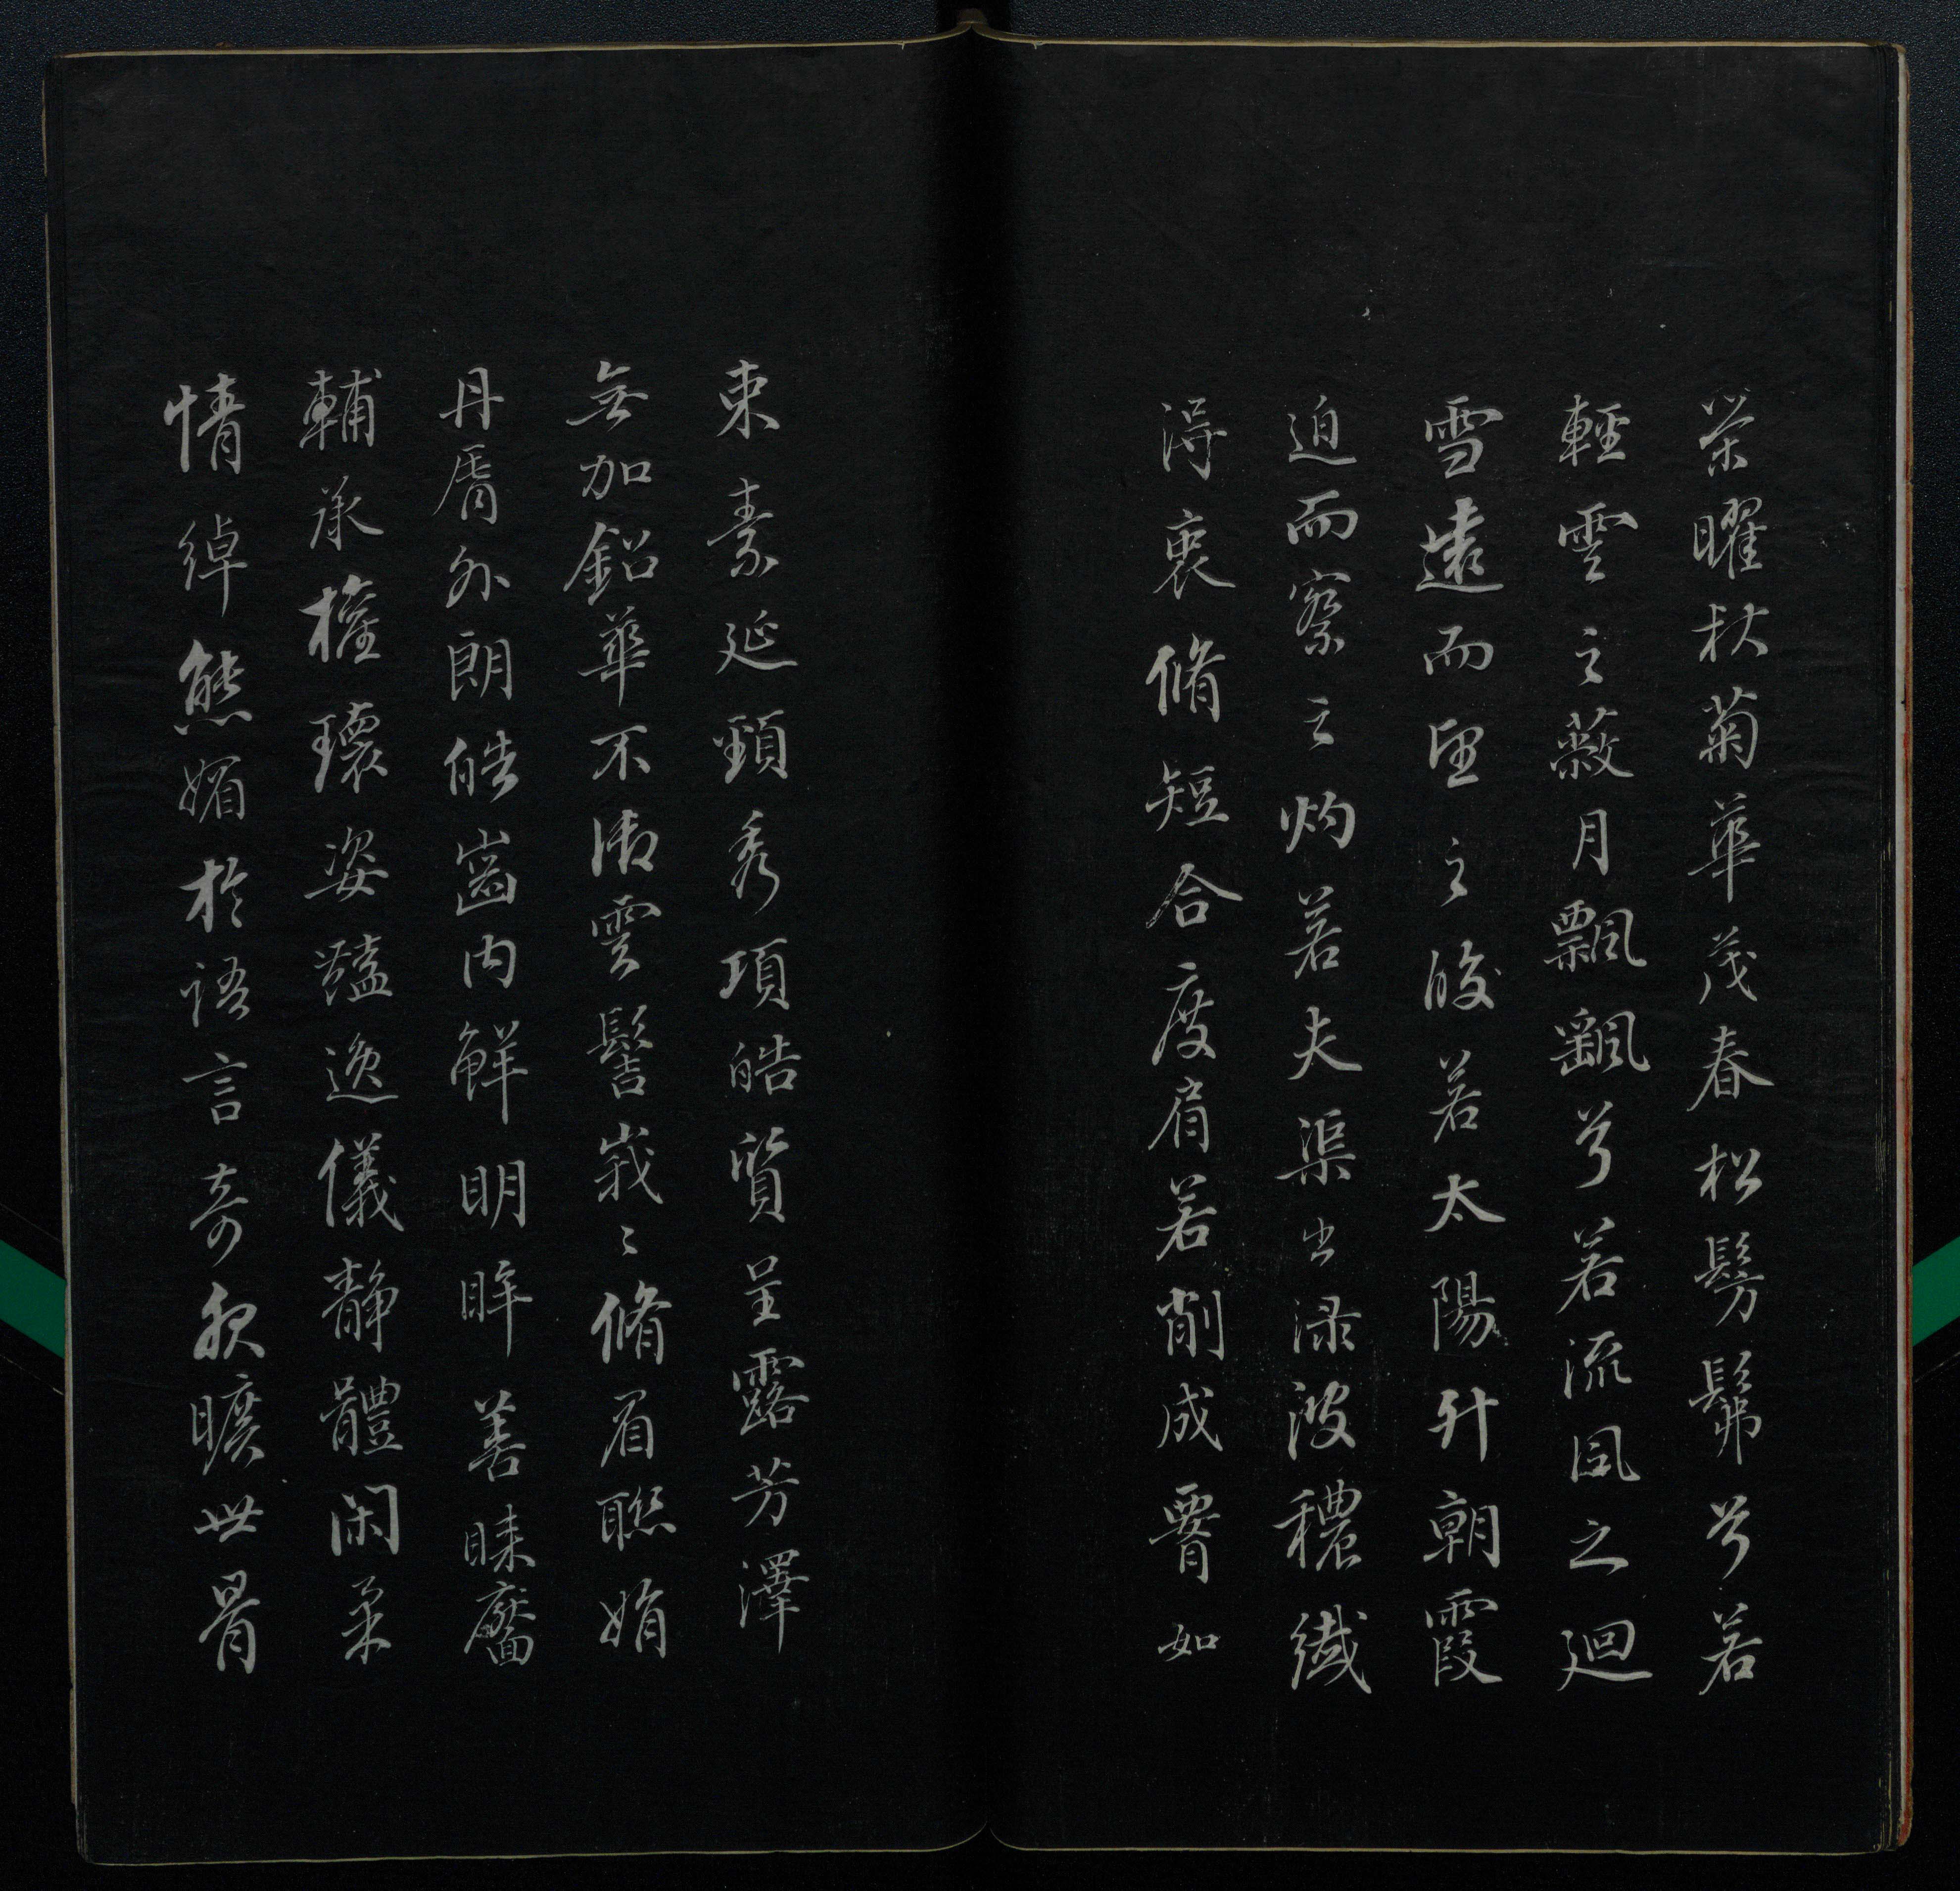 榮曜秋菊華茂春松髣髴兮若
輕雲之蔽月飄颻兮若流風之迴
雪遠而望之皎若太陽升朝霞
迫而察之灼若夫渠出淥波穠纖
得衷脩短合度肩若削成䙅如
束素延頸秀項皓質呈露芳澤
無加鉛華不御雲髻峩〻脩眉聯娟
丹脣外朗皓齒內鮮明眸善睞靨
輔承權瓌姿豔逸儀靜體閑柔
情綽態媚於語言奇服曠世骨